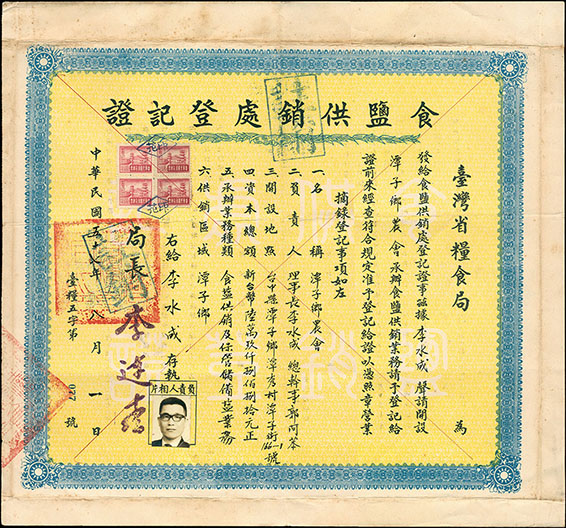 食鹽供銷處登記證
臺灣省糧食局 為
發給食鹽供銷處登記證事茲據 李水成 聲請開設
潭子鄉農會承辦食鹽供銷業務請予登記給
證前來經查符合規定准予登記給證以憑照章營業
摘錄登記事項如左
一、名 稱 潭子鄉農會
二、負責人 理事長李水成 總幹事郭
三、開設地點 台中縣潭子鄉潭秀村潭子街 號
四、資本總額 新台幣陸萬玖仟捌佰捌拾元正
五、承辦業務種類 食鹽供銷及保管儲備鹽業務
六、供銷區域 潭子鄉
右給 李水成 存執
局長 李連春
中華民國五十 年 八 月 一 日
臺糧五字第 027 號
負責人相片